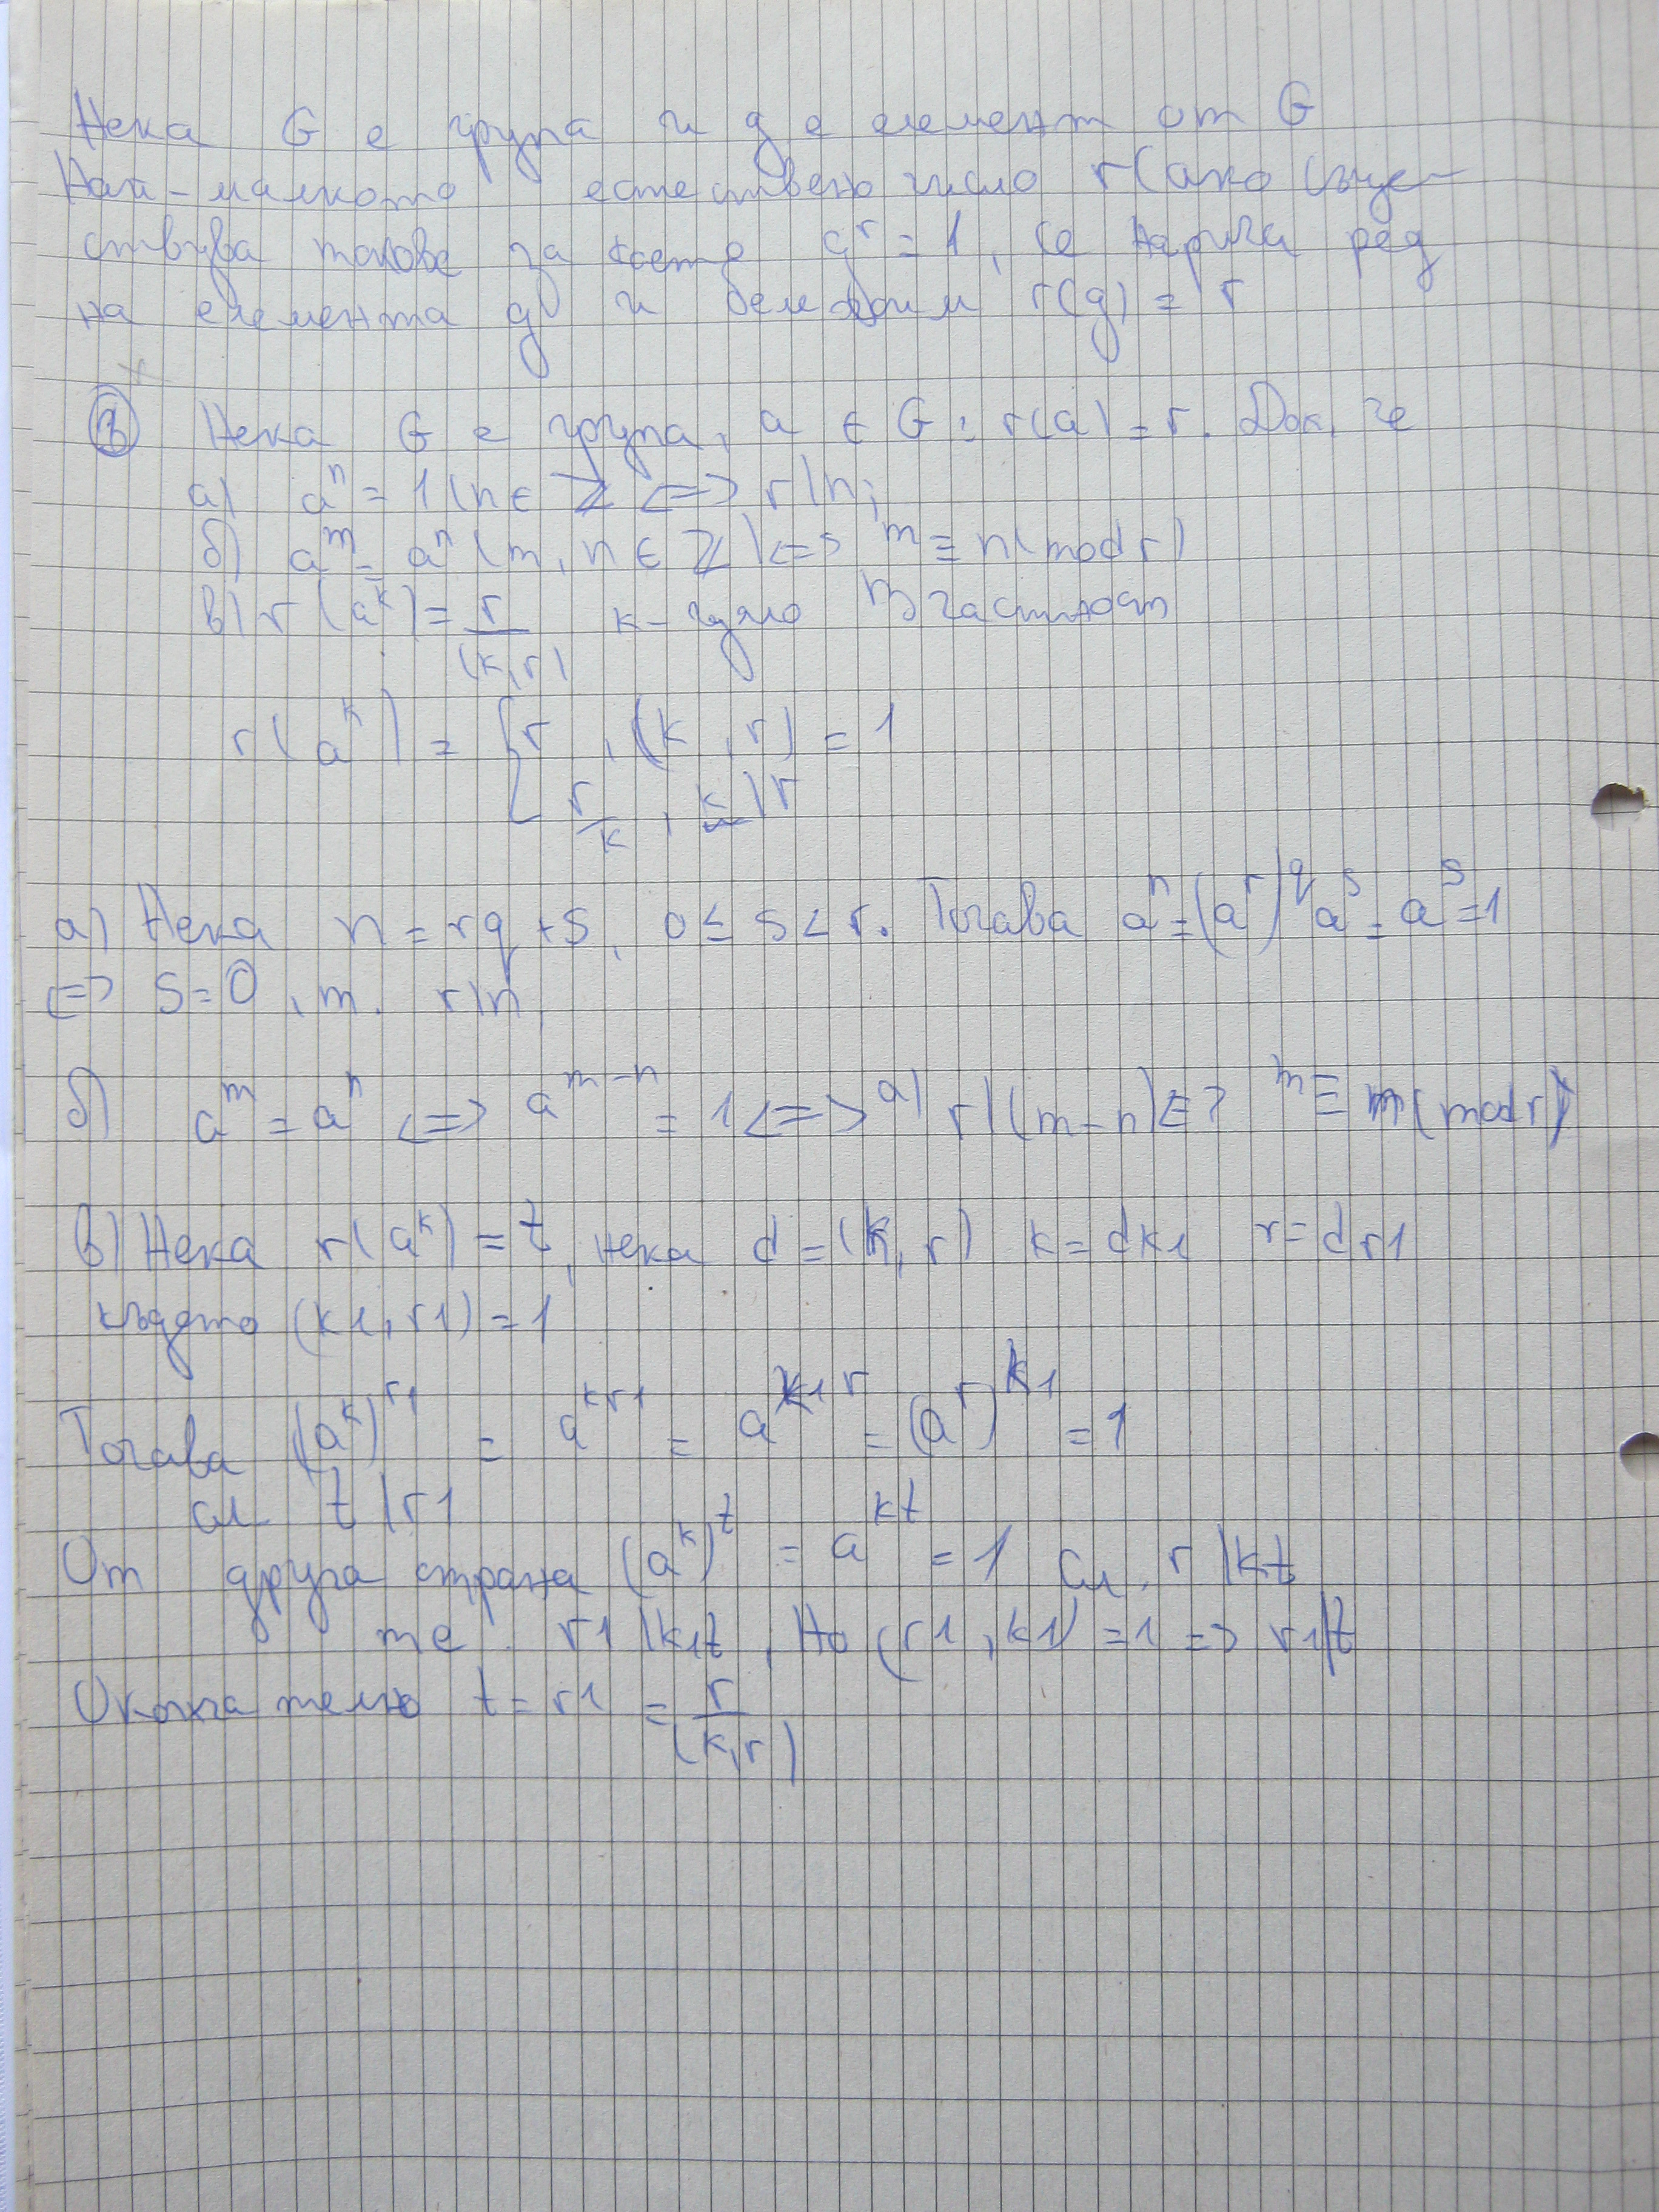 Нека G е група и g е елемент от G
Най-малкото естествено число r (ако съще-
ствува такова за което g^r = 1, се нарича ред
на елемента g и бележим r(g) = r
Нека G е група, a ∈ G : r(a) = r. Док. че
а) a^n = 1 (n ∈ ℤ <=> r|n;
б) a^m = a^n (m, n ∈ ℤ) <=> m ≡ n (mod r)
в) r(a^k) = r/(k,r) k - цяло В частност
r(a^k) = { r , (k, r) = 1
r/k , k|r
а) Нека n = rq + s, 0 ≤ s < r. Тогава a^n = (a^r)^q a^s = a^s = 1
<=> s = 0, т. r|n
б) a^m = a^n <=> a^(m-n) = 1 <=> а) r|(m-n) <=> m ≡ n (mod r)
в) Нека r(a^k) = t, нека d = (k, r) k = dk1 r = dr1
където (k1, r1) = 1
Тогава (a^k)^r1 = a^(kr1) = a^(k1r) = (a^r)^k1 = 1
сл. t|r1
От друга страна (a^k)^t = a^(kt) = 1 сл. r|kt
те. r1|k1t, Но (r1, k1) = 1 => r1|t
Окончателно t = r1 = r/(k,r)